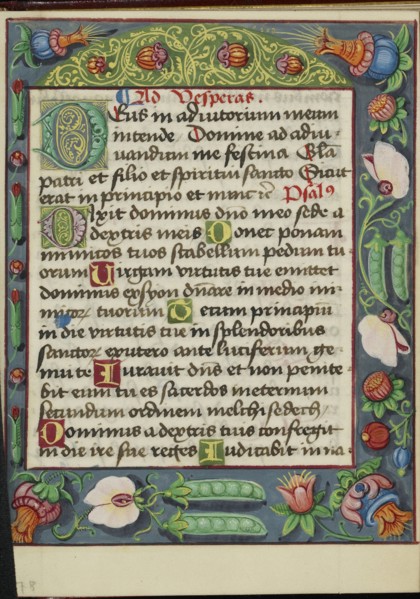 Ad Vesperas.
Deus in adiutorium meum
intende Domine ad adiu-
uandum me festina Gl̄a
patri et filio et spiritui sancto Sicut
erat in principio et nunc Psal
Dixit dominus dno meo sede a
dextris meis Donec ponam
inimicos tuos scabellum pedum tu-
orum Uirgam virtutis tue emittet
dominus ex syon dnare in medio ini-
micor tuorum Tecum principiū
in die virtutis tue in splendoribus
sanctor ex utero ante luciferum ge-
nui te Iurauit dn̄s et non penite-
bit eum tu es sacerdos in eternum
secundum ordinem melchisedech
Dominus a dextris tuis confregit
in die ire sue reges Iudicabit in na-
78